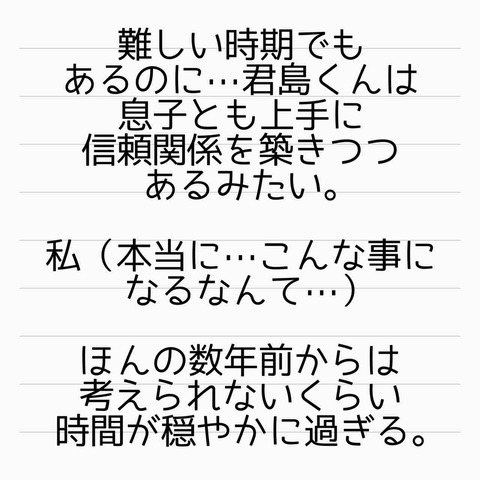 難しい時期でも
あるのに…君島くんは
息子とも上手に
信頼関係を築きつつ
あるみたい。
私（本当に…こんな事に
なるなんて…）
ほんの数年前からは
考えられないくらい
時間が穏やかに過ぎる。